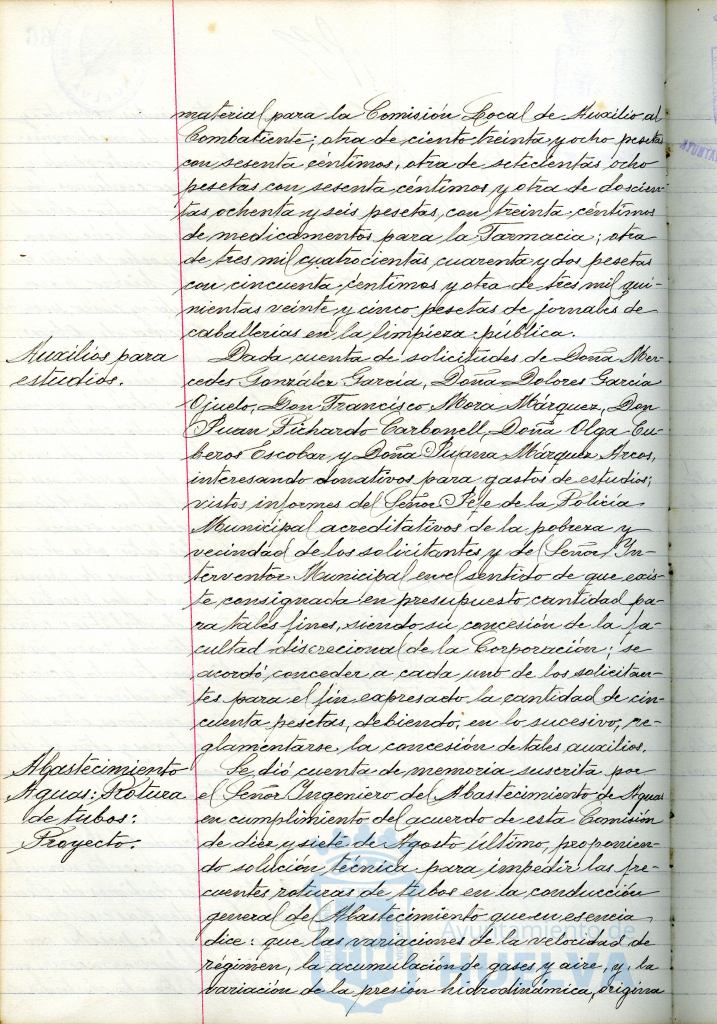 material para la Comisión Local de Auxilio al
Combatiente; otra de ciento treinta y ocho pesetas
con sesenta céntimos, otra de setecientas ocho
pesetas con sesenta céntimos y otra de doscien-
tas ochenta y seis pesetas con treinta céntimos
de medicamentos para la Farmacia; otra
de tres mil cuatrocientas cuarenta y dos pesetas
con cincuenta céntimos y otra de tres mil qui-
nientas veinte y cinco pesetas de jornales de
caballerías en la limpieza pública.
Auxilios para
estudios.
Dada cuenta de solicitudes de Doña Mer-
cedes González García, Doña Dolores García
Ojuelo, Don Francisco Mora Márquez, Don
Juan Pichardo Carbonell, Doña Olga Cu-
beros Escobar y Doña Juana Márquez Arcos,
interesando donativos para gastos de estudios;
vistos informes del Señor Jefe de la Policía
Municipal acreditativos de la pobreza y
vecindad de los solicitantes y del Señor In-
terventor Municipal en el sentido de que exis-
te consignada en presupuesto cantidad pa-
ra tales fines, siendo su concesión de la fa-
cultad discrecional de la Corporación; se
acordó, conceder a cada uno de los solicitan-
tes para el fin expresado la cantidad de cin-
cuenta pesetas, debiendo, en lo sucesivo, re-
glamentarse la concesión de tales auxilios.
Abastecimiento
Aguas: Rotura
de tubos:
Proyecto.
Se dió cuenta de memoria suscrita por
el Señor Ingeniero del Abastecimiento de Aguas
en cumplimiento del acuerdo de esta Comisión
de diez y siete de Agosto último, proponien-
do solución técnica para impedir las fre-
cuentes roturas de tubos en la conducción
general del Abastecimiento que en esencia
dice: que las variaciones de la velocidad de
régimen, la acumulación de gases y aire, y la
variación de la presión hidrodinámica, origina
Ayuntamiento de
HUELVA